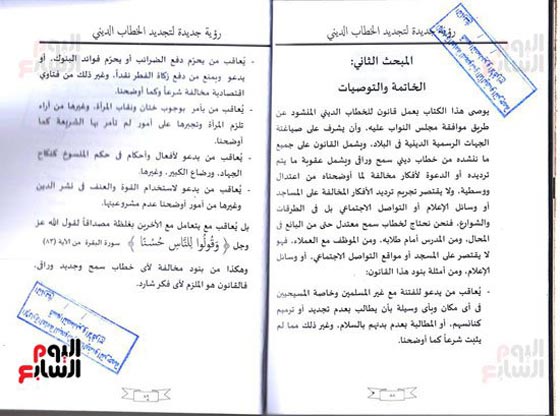 رؤية جديدة لتجديد الخطاب الديني
المبحث الثاني:
الخاتمة والتوصيات
يوصى هذا الكتاب بعمل قانون للخطاب الديني المنشود عن
طريق موافقة مجلس النواب عليه، وأن يشرف على صياغته
الجهات الرسمية الدينية في البلاد، ويشمل القانون على جميع
ما ننشده من خطاب ديني سمح وراقى ويشمل عقوبة ما يتم
ترديده أو الدعوة لأفكار مخالفة لما أوضحناه من اعتدال
ووسطية، ولا يقتصر تجريم ترديد الأفكار المخالفة على المساجد
أو وسائل الإعلام أو التواصل الاجتماعي بل في الطرقات
والشوارع، فنحن نحتاج لخطاب سمح معتدل حتى من البائع في
المحال، ومن المدرس أمام طلابه، ومن الموظف مع العملاء، فهو
لا يقتصر على المسجد أو مواقع التواصل الاجتماعي، أو وسائل
الإعلام، ومن أمثلة بنود هذا القانون:
- يعاقب من يدعو للفتنة مع غير المسلمين وخاصة المسيحيين
في أى مكان وبأى وسيلة بأن يطالب بعدم تجديد أو ترميم
كنائسهم، أو المطالبة بعدم بدئهم بالسلام، وغير ذلك مما لم
يثبت شرعاً كما أوضحنا.
رؤية جديدة لتجديد الخطاب الديني
- يُعاقب من يحرم دفع الضرائب أو يحرم فوائد البنوك، أو
يدعو ويمنع من دفع زكاة الفطر نقداً، وغير ذلك من فتاوي
اقتصادية مخالفة شرعاً كما أوضحنا.
- يُعاقب من يأمر بوجوب ختان ونقاب المرأة، وغيرها من آراء
تلزم المرأة وتجبرها على أمور لم تأمر بها الشريعة كما
أوضحنا.
- يُعاقب من يدعو لأفعال وأحكام في حكم المنسوخ كنكاح
الجهاد، ورضاع الكبير، وغيرها.
- يُعاقب من يدعو لاستخدام القوة والعنف في نشر الدين
وغيرها من أمور أوضحنا عدم مشروعيتها.
بل يُعاقب من يتعامل مع الآخرين بغلظة مصداقاً لقول الله عز
وجل ﴿ وَقُولُوا لِلنَّاسِ حُسْنًا ﴾ سورة البقرة من الآية (٨٣)
وهكذا من بنود مخالفة لأى خطاب سمح وجديد وراقى،
فالقانون هو الملزم لأى فكر شارد.
اليوم السابع
اليوم السابع
اليوم السابع